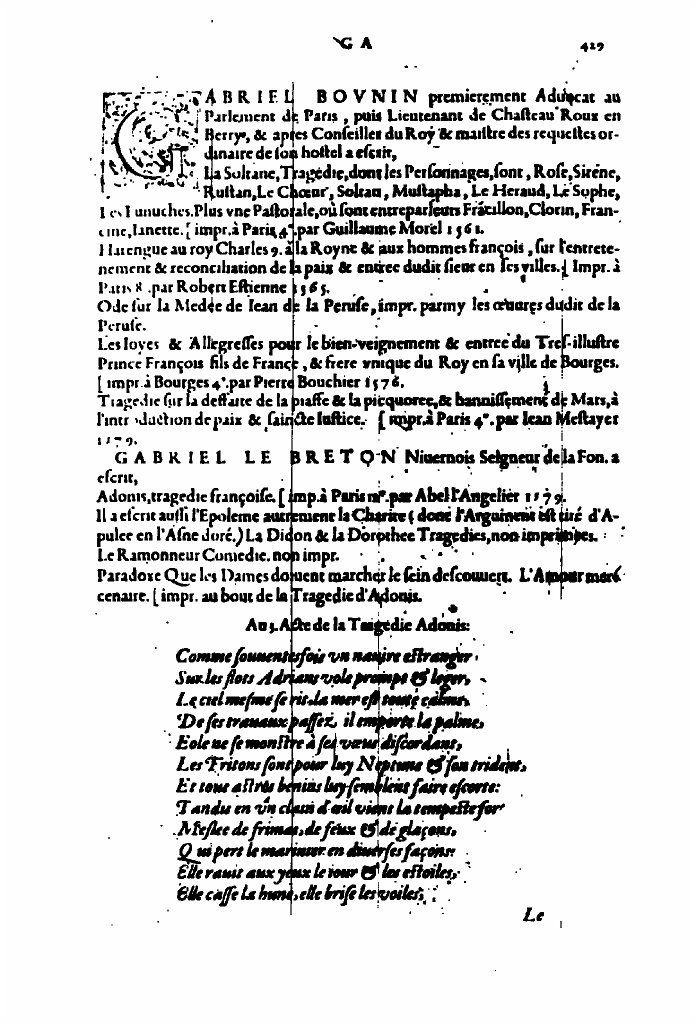 GA 419
GABRIEL BOVNIN premierement Aduocat au
Parlement de Paris, puis Lieutenant de Chasteau Roux en
Berry, & apres Conseiller du Roy & maistre des requestes or-
dinaire de son hostel a escrit,
La Soltane, Tragedie, dont les Personnages, sont, Rose, Sirene,
Rustan, Le Chœur, Soltan, Mustapha, Le Heraud, Le Sophe,
Les Eunuches. Plus vne Pastorale, où sont entreparleurs Clorin, Fran-
cine, Ianette. [impr. à Paris 4°. par Guillaume Morel 1561.
Harengue au roy Charles 9. à la Royne & aux hommes françois, sur l'entrete-
nement & reconciliation de la paix & entree dudit sieur en ses villes. [Impr. à
Paris 8. par Robert Estienne 1565.
Ode sur la Medée de Iean de la Peruse, impr. parmy les œuures dudit de la
Peruse.
Les Ioyes & Allegresses pour le bien-veignement & entree du Tres-illustre
Prince François fils de France, & frere vnique du Roy en sa ville de Bourges.
[impr. à Bourges 4°. par Pierre Bouchier 1576.
Tragedie sur la deffaite de la piaffe & la picquoree, & bannissement de Mars, à
l'introduction de paix & saincte Iustice. [impr. à Paris 4°. par Iean Mestayer
1579.
GABRIEL LE BRETON Niuernois Seigneur de la Fon. a
escrit,
Adonis, tragedie françoise. [imp. à Paris par Abel l'Angelier 1579.
Il a escrit aussi l'Epoleme autrement la Charite (dont l'Argument est tiré d'A-
pulee en l'Asne doré.) La Didon & la Dorothee Tragedies, non imprimees.
Le Ramonneur Comedie. non impr.
Paradoxe Que les Dames doiuent marcher le sein descouuert. L'Amour mer-
cenaire. [impr. au bout de la Tragedie d'Adonis.
Au 3. Acte de la Tragedie Adonis:
Comme souuentesfois vn nauire estranger
Sur les flots Adrians vole prompt & leger,
Le ciel mesme se rit, la mer est toute calme,
De ses trauaux passez, il emporte la palme,
Eole ne se monstre à ses vœus discordant,
Les Tritons sont pour luy Neptune & son trident,
Et tous astres benins luy semblent faire escorte:
Tandis en vn clain d'œil vient la tempeste forte
Meslee de frimas, de feux & de glaçons,
Qui pert le marinier en diuerses façons:
Elle rauit aux yeux le iour & les estoiles,
Elle casse la hune, elle brise les voiles,
Le